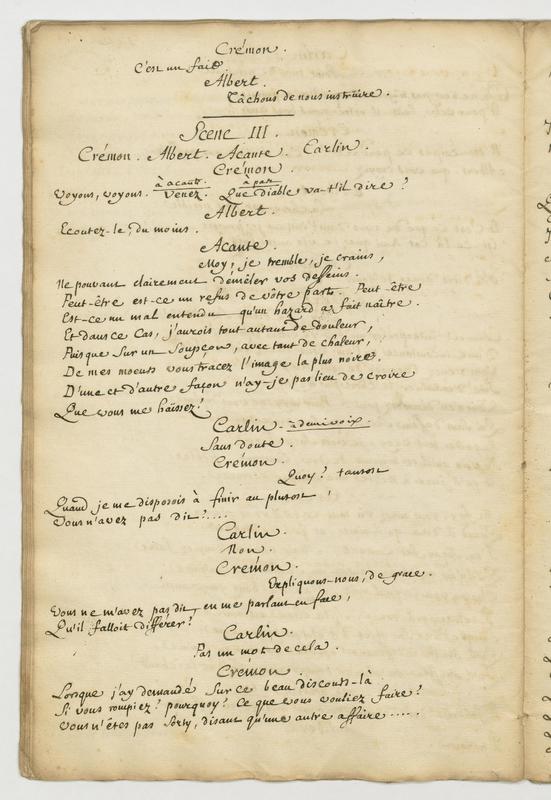 Crémon.
C'est un fait.
Albert.
Tâchons de nous instruire.
Scene III.
Crémon. Albert. Acante. Carlin.
Crémon.
à acante. à part
Voyons, voyons. Venez. Que diable va-t'il dire?
Albert.
Ecoutez-le, du moins.
Acante.
Moy, je tremble, je crains,
Ne pouvant clairement démêler vos desseins.
Peut-être est-ce un refus de vôtre part. Peut-être
Est-ce un mal entendu qu'un hazard a fait naître.
Et dans ce Cas, j'aurois tout autant de douleur,
Puisque sur un Soupçon, avec tant de chaleur,
De mes moeurs vous tracez l'image la plus noire.
D'une et d'autre façon n'ay-je pas lieu de croire
Que vous me haïssez?
Carlin. à demi voix.
Sans doute.
Crémon.
Quoy? tantost
Quand je me disposois à finir au plutost,
Vous n'avez pas dit?....
Carlin.
Non.
Cremon.
Expliquons-nous, de grace.
Vous ne m'avez pas dit, en me parlant en face,
Qu'il falloit différer?
Carlin.
Pas un mot de cela.
Crémon.
Lorsque j'ay demandé sur ce beau discours-là
Si vous rompiez? pourquoy? Ce que vous vouliez faire?
Vous n'êtes pas Sorty, disant qu'une autre affaire.....